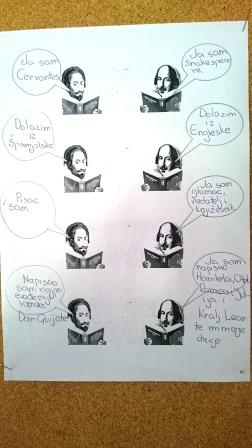 Ja sam
Cervantes
Ja sam
Shakespea
re
Dolazim
iz
Španjolske
Dolazim
iz
Engleske
Pisac
sam
Ja sam
glumac,
redatelj i
književnik
Napisao
sam najpr
roman
Don Quijote
Ja sam
napisao
Hamleta,
i
Kralj Lear
te mnoge
druge